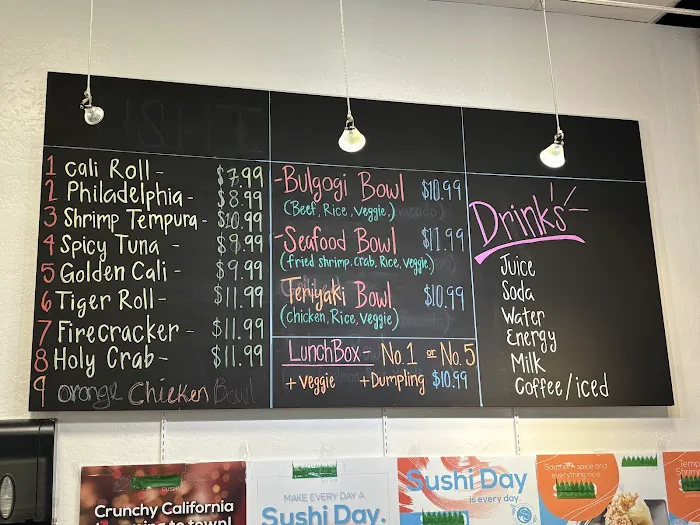 1 Cali Roll - $7.99
2 Philadelphia - $8.99
3 Shrimp Tempura - $10.99
4 Spicy Tuna - $9.99
5 Golden Cali - $9.99
6 Tiger Roll - $11.99
7 Firecracker - $11.99
8 Holy Crab - $11.99
9 orange Chicken Bowl
- Bulgogi Bowl $10.99
(Beef, Rice, veggie.)
- Seafood Bowl $11.99
(fried shrimp, crab, Rice, veggie)
Teriyaki Bowl $10.99
(chicken, Rice, veggie)
LunchBox - No.1 or No.5
+ veggie + Dumpling $10.99
Drinks
Juice
Soda
Water
Energy
Milk
Coffee/iced
Crunchy California
to town!
MAKE EVERY DAY A
Sushi Day.
Sushi Day
is every day.
Southern spice and
everything rice
Shrimp